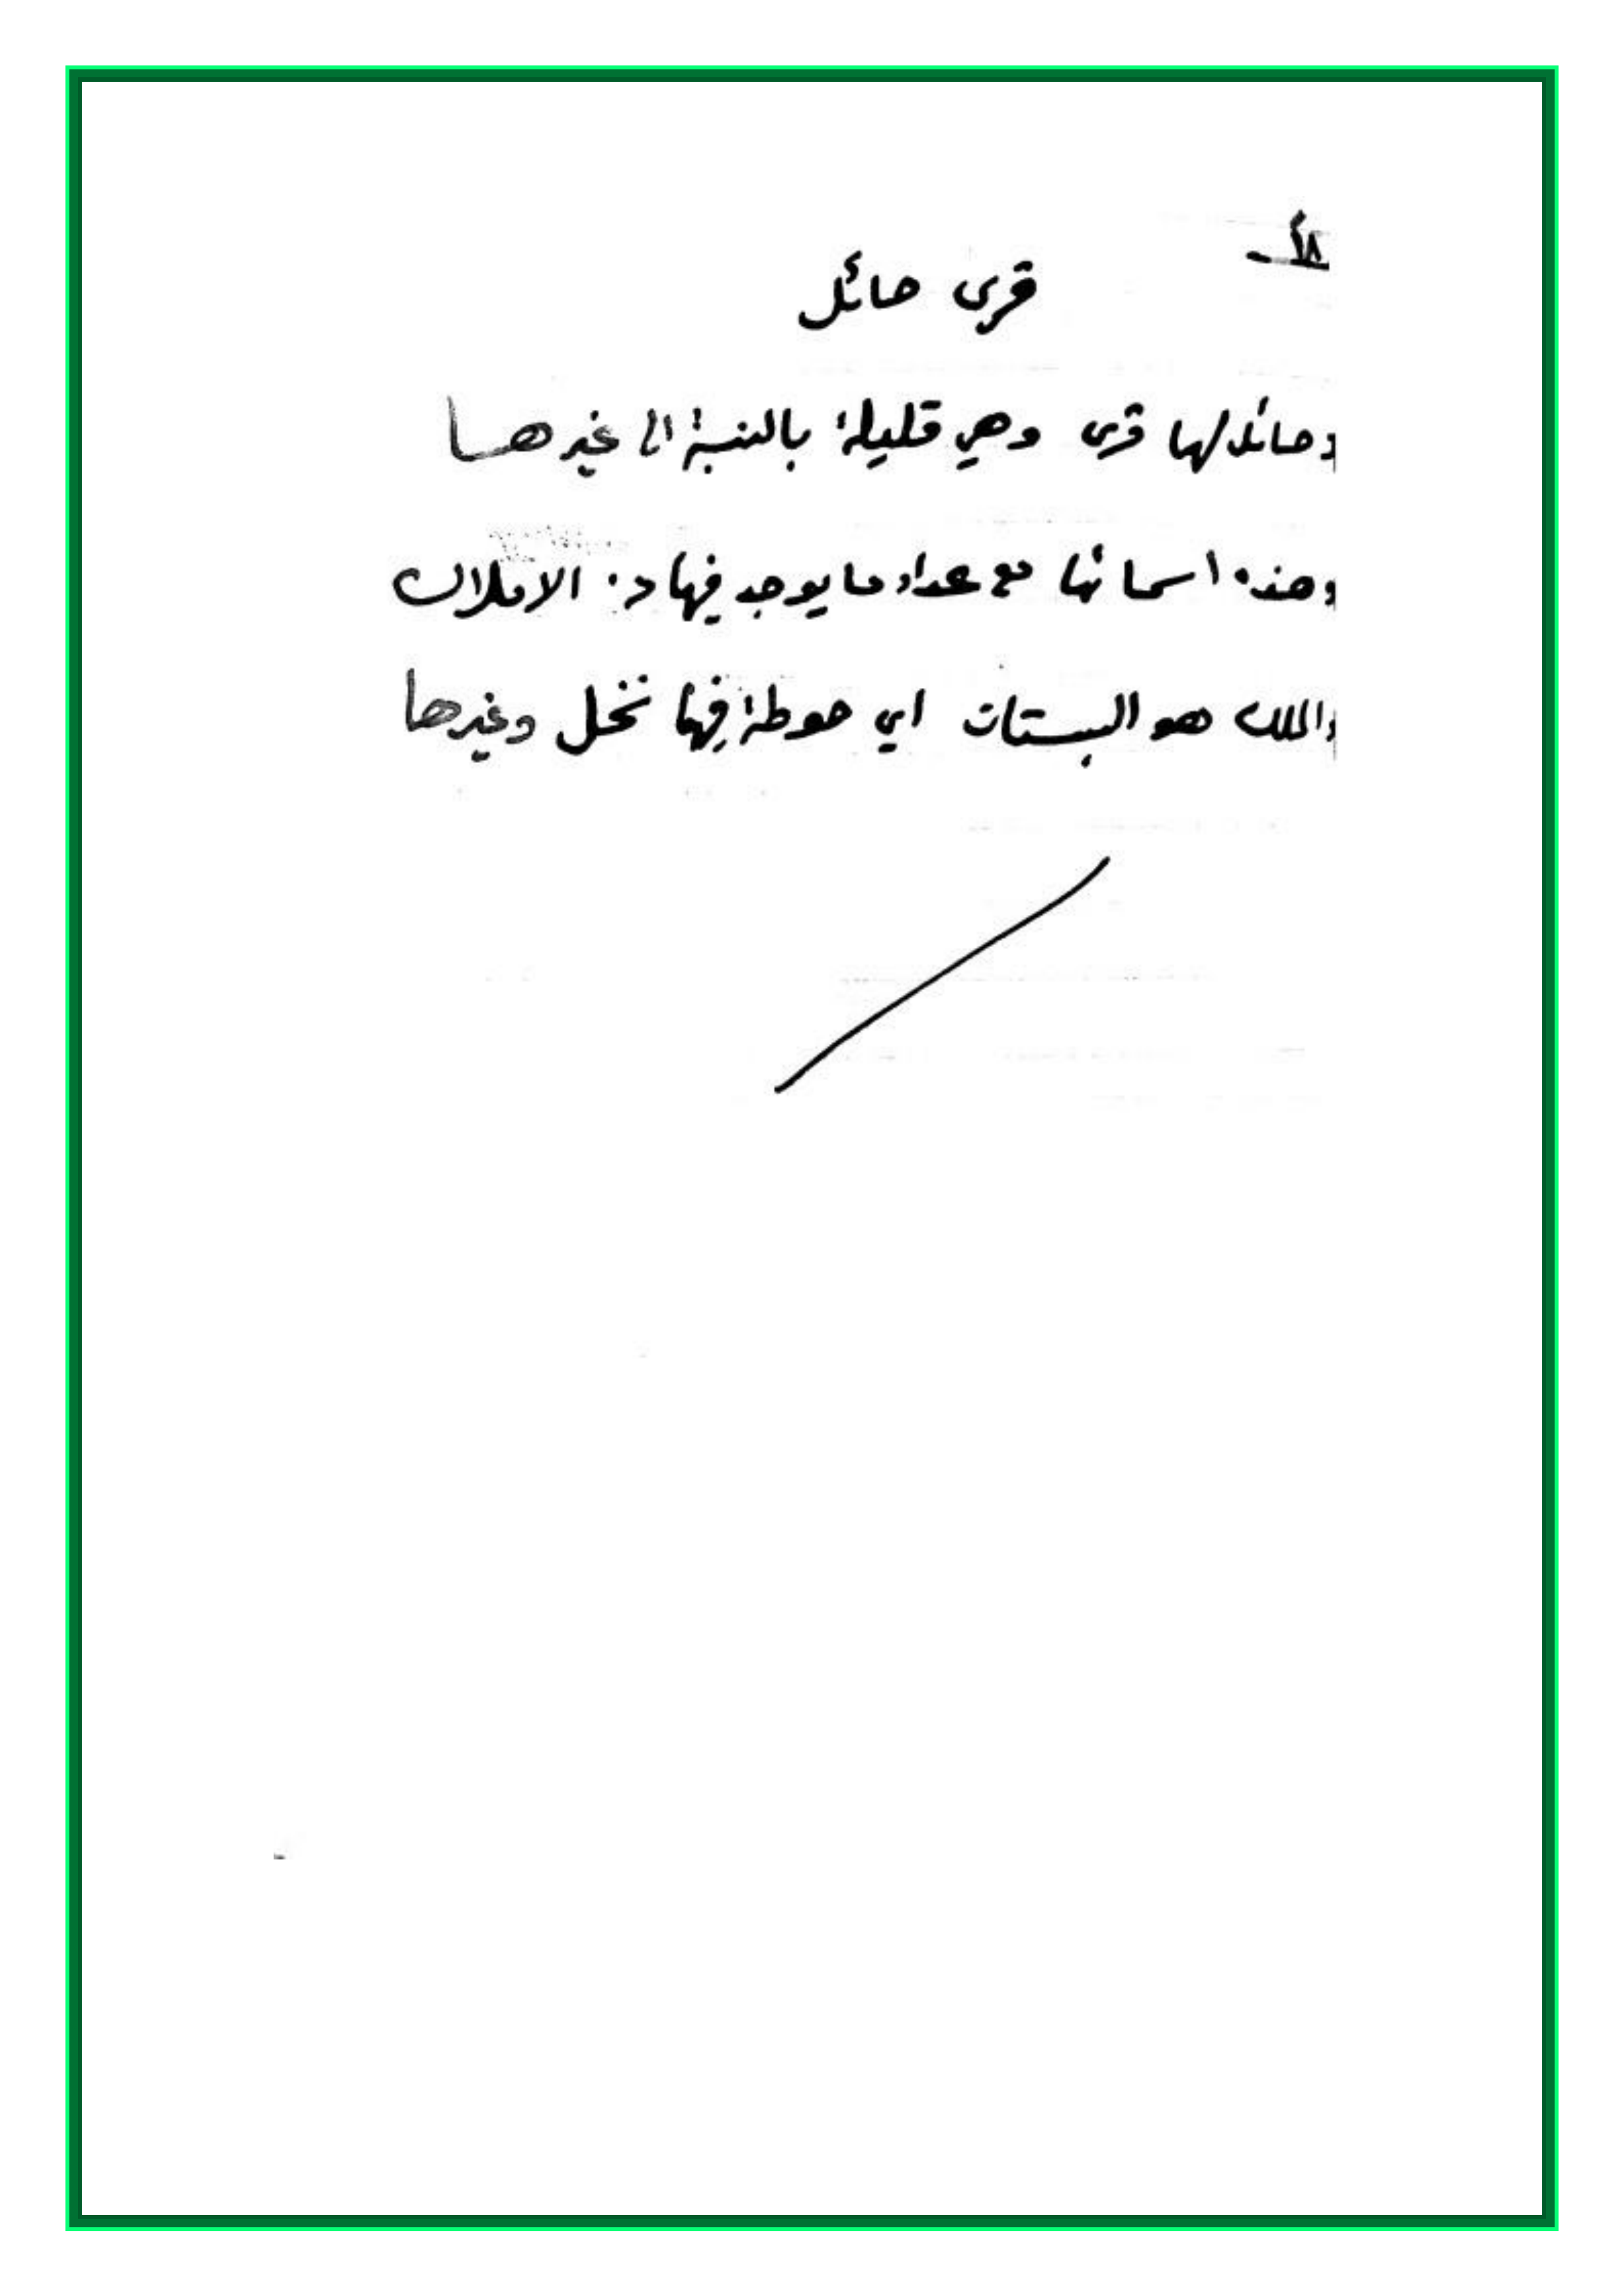 ١٨ـ
قرى حائل
وحائل لها قرى وهي قليلة بالنسبة الى غيرها
وهذه اسمائها مع عداد ما يوجد فيها من الاملاك
والملك هو البستان اي حوطة فيها نخل وغيرها